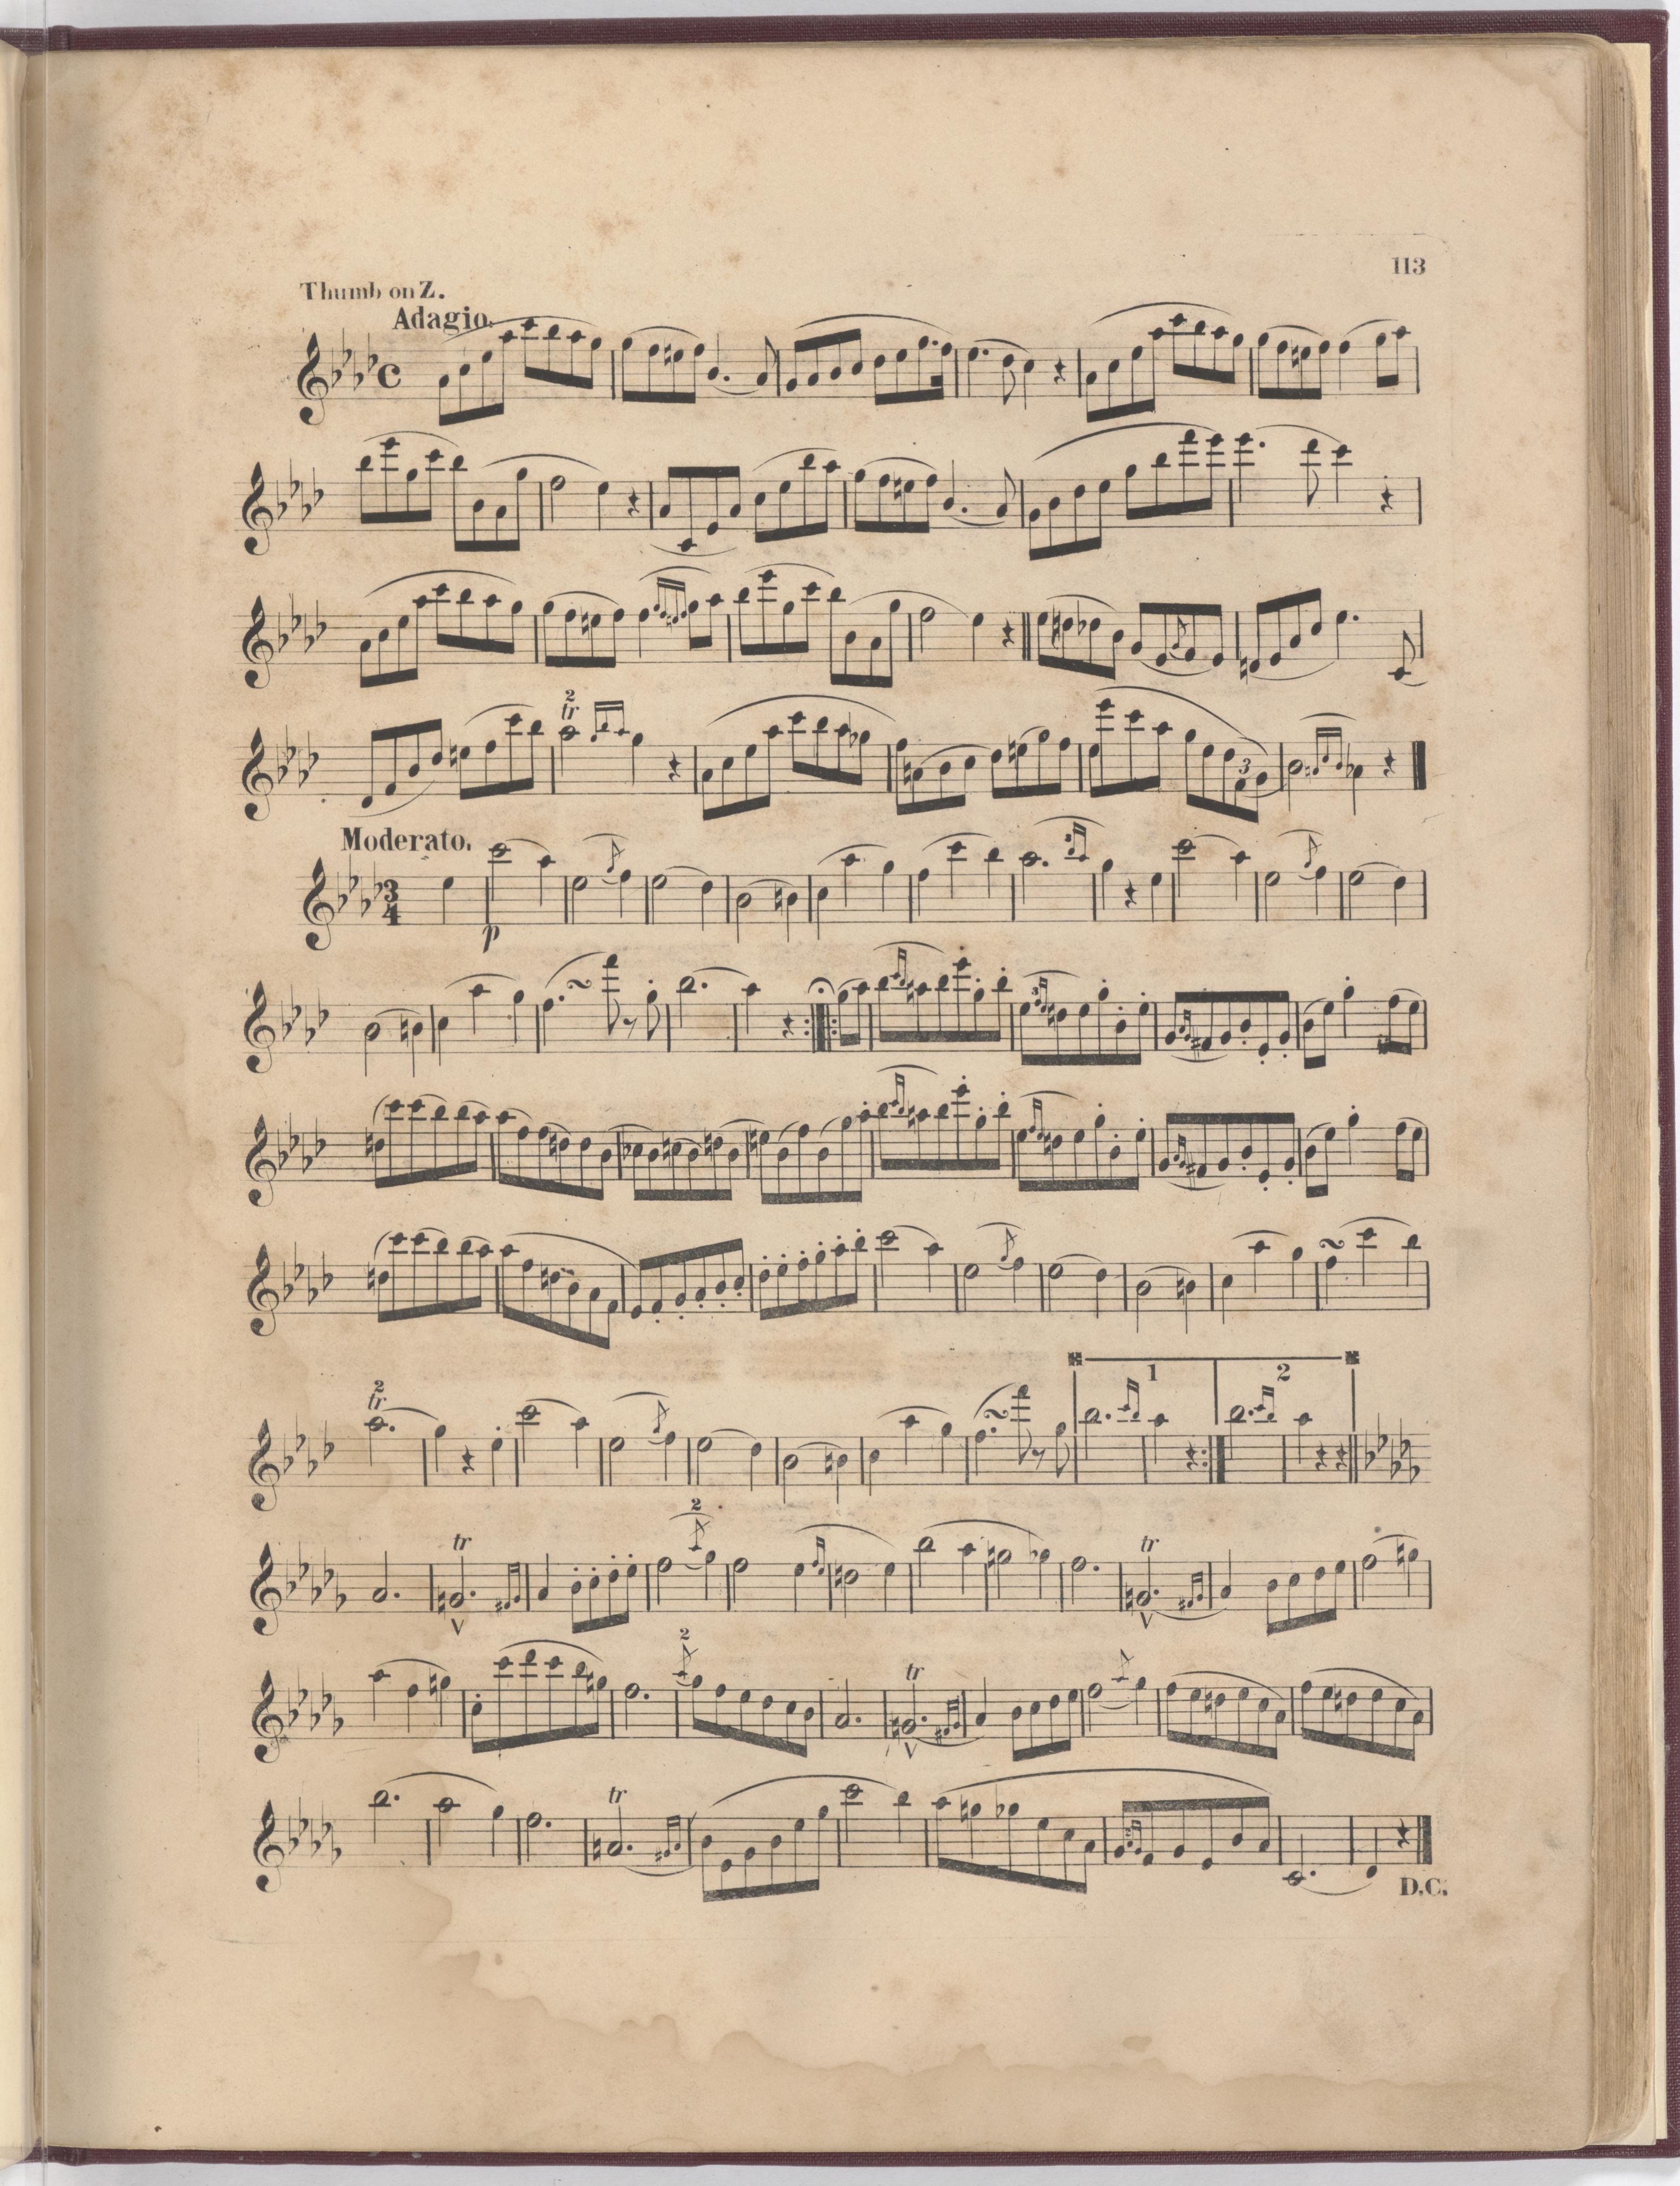 113
Thumb on Z.
Adagio.
C
3
2
tr
3
Moderato.
3
4
p
3
2
tr
1
2
2
tr
tr
2
tr
tr
D.C.